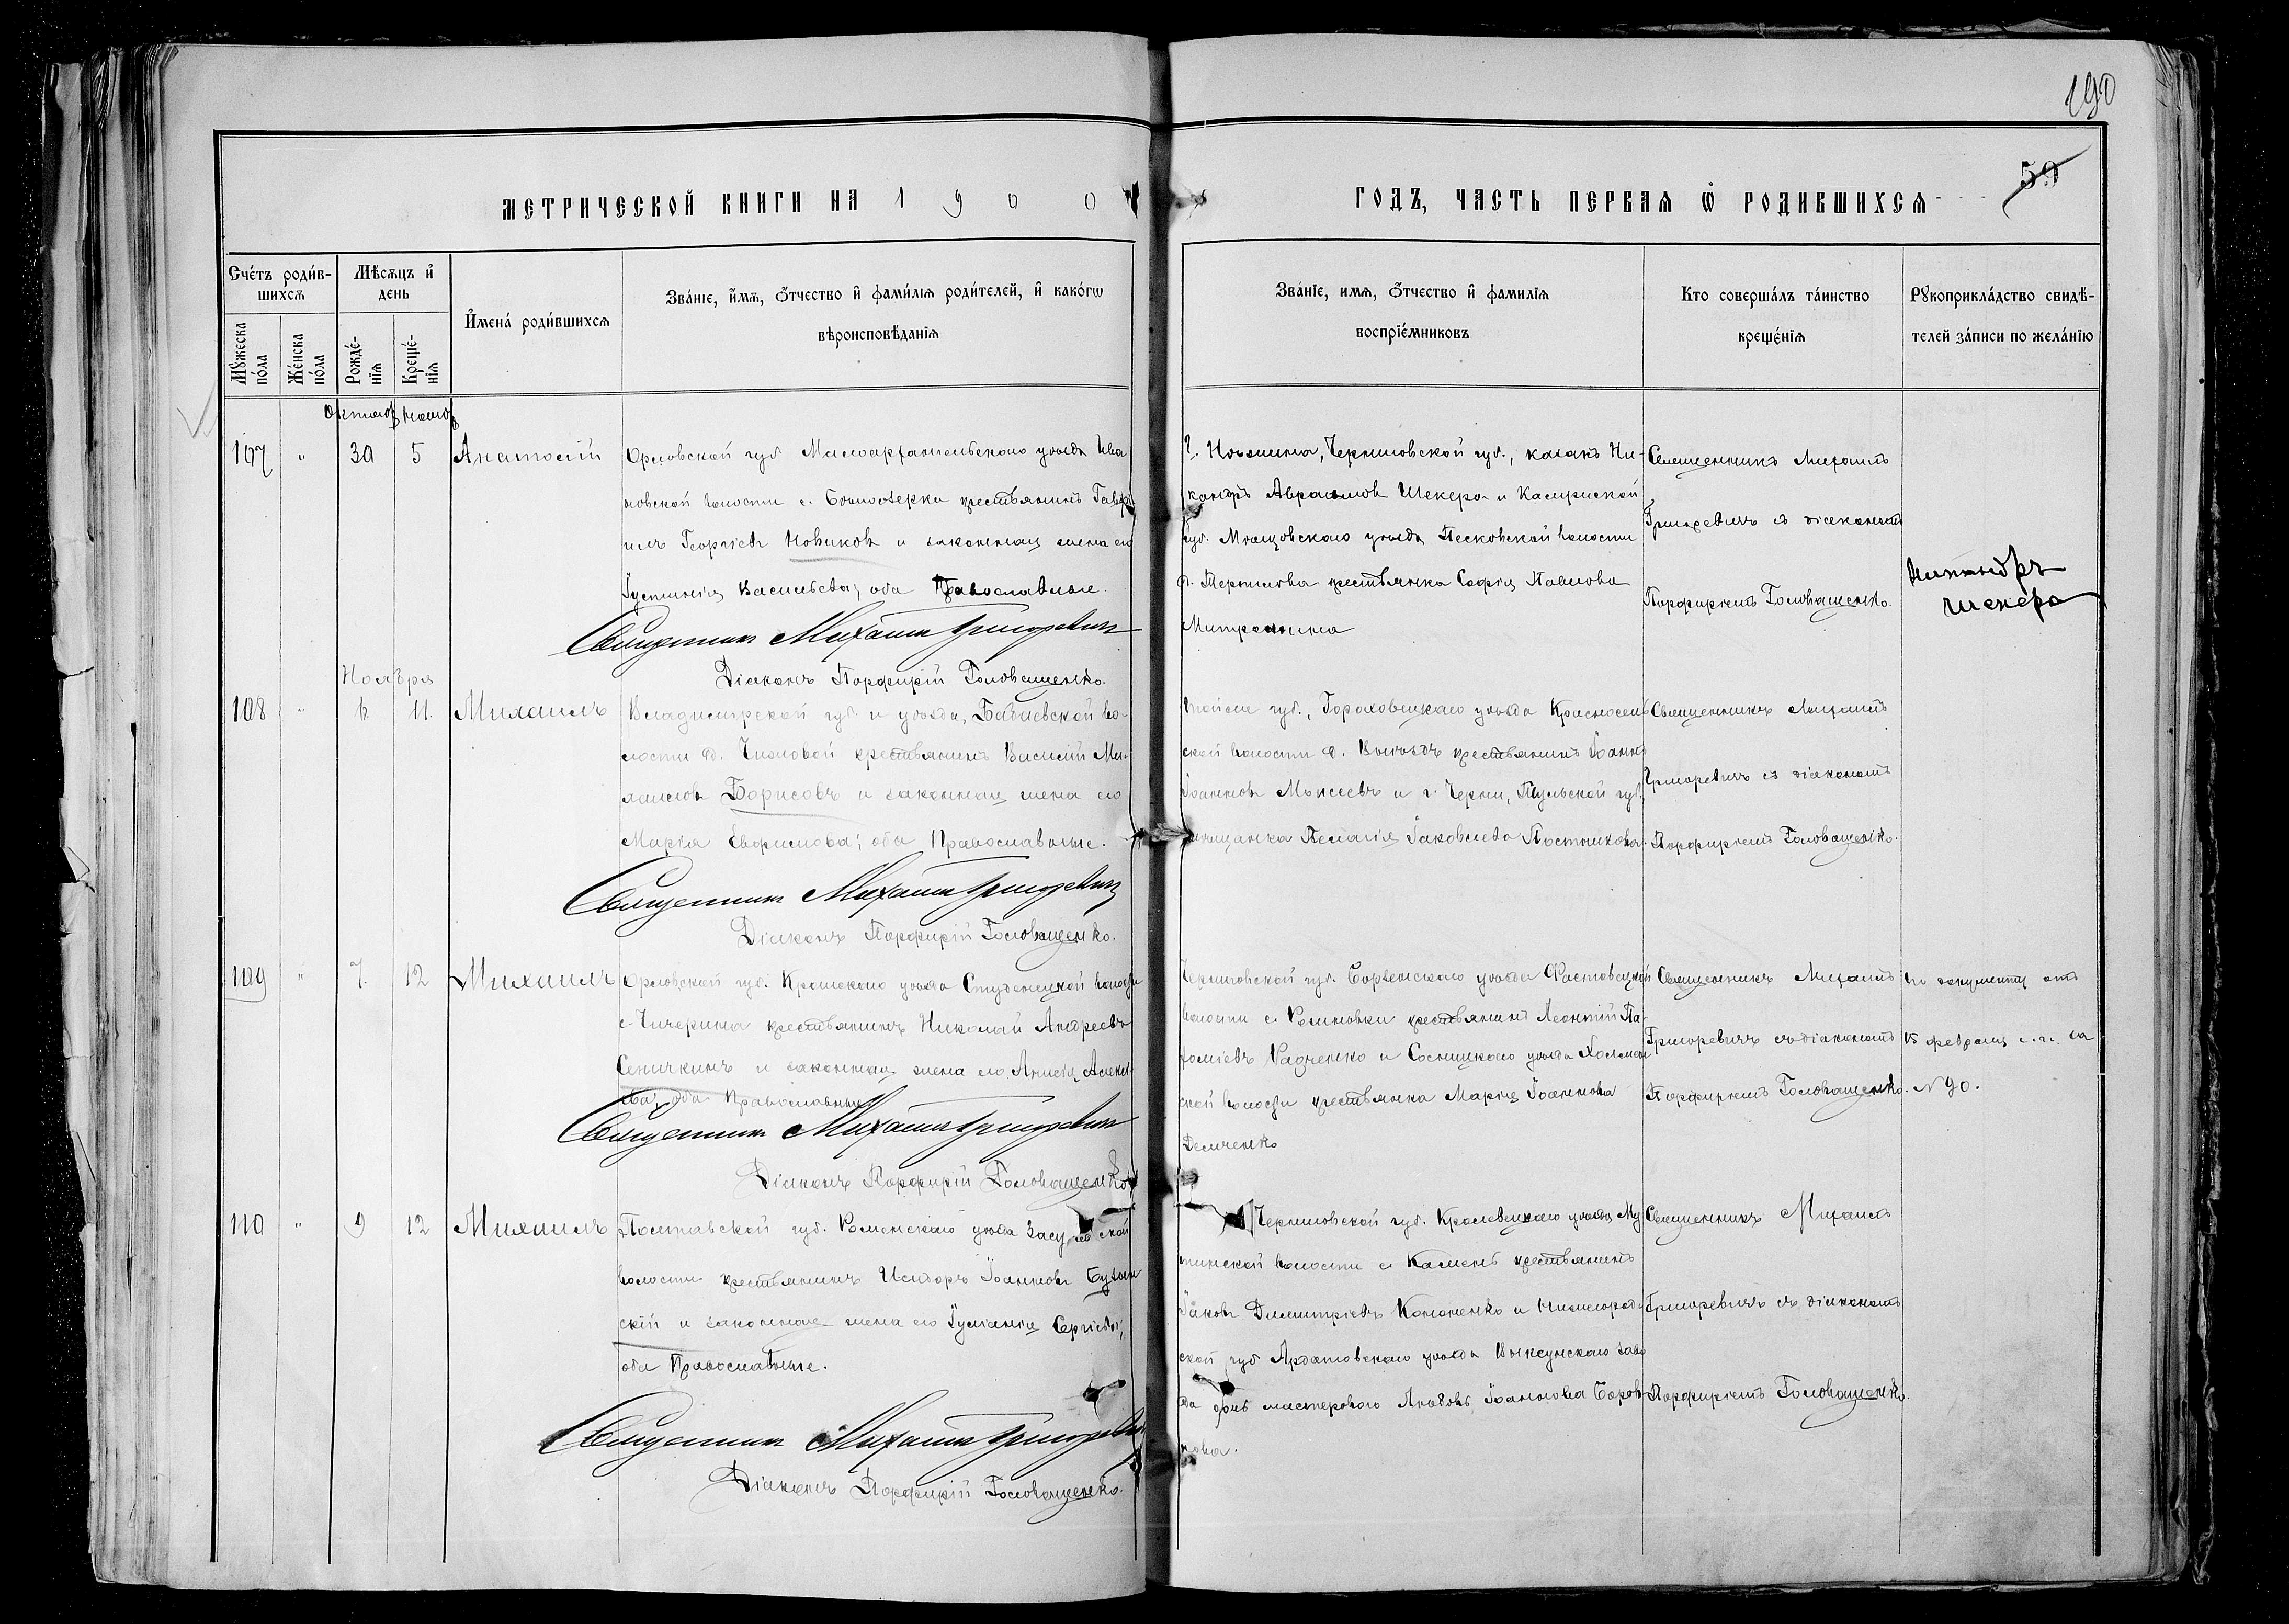 190
59
МЕТРИЧЕСКОЙ КНИГИ НА 1900
ГОДЪ, ЧАСТЬ ПЕРВАЯ Ѡ РОДИВШИХСЯ
Сче́тъ роди́в-
шихсѧ
Мѣсѧцъ и҆
день
И҆мена́ роди́вшихсѧ
Зва́ніе, и҆́мѧ, ѻ҆́тчество и҆ фами́лїѧ роди́телей, и҆ како́гѡ
вѣроисповѣ́данїѧ
Мꙋ́жеска
по́ла
Же́нска
по́ла
Рожде́-
нїѧ
Креще́-
нїѧ
Зва́нїе, имѧ, ѻ҆́тчество и҆ фамилїѧ
воспрїе́мниковъ
Кто соверша́лъ та́инство
креще́нїѧ
Рꙋкоприкла́дство свидѣ́-
телей за́писи по жела́нїю
107 " 30 5 Анатолій
Орловской губ. Малоархангельскаго уѣзда Ива
новской волости с. крестьянинъ Гавр
илъ Георгіевъ Новиковъ и законная жена его
Іустинія Васильева; оба Православные.
Священникъ Михаилъ Григоревичъ
Діаконъ Порфирій Головащенко.
г. Черниговской губ., казакъ Ни-
кандръ Авраамовъ Шекера и Калужской
губ. Мещовскаго уѣзда Песковской волости
крестьянка Софія Павлова
Митрошина
Священникъ Михаилъ
Григоревичъ съ діакономъ
Порфиріемъ Головащенко.
Никандръ
Шекера
Ноября
108 " 6 11. Михаилъ
Владимірской губ. и уѣзда, во-
лости д. крестьянинъ Василій Ми-
хаиловъ Борисовъ и законная жена его
Марія оба Православные.
Священникъ Михаилъ Григоревичъ
Діаконъ Порфирій Головащенко.
той же губ., Гороховецкаго уѣзда Красносель
ской волости д. крестьянинъ Іоаннъ
Іоанновъ Моисеевъ и г. Черни, Тульской губ.,
мѣщанка Пелагія Іаковлева Постникова.
Священникъ Михаилъ
Григоревичъ съ діакономъ
Порфиріемъ Головащенко.
109 " 7. 12 Михаилъ
Орловской губ. Кромскаго уѣзда волости
с. Чичерина крестьянинъ Николай Андреевъ
Сеничкинъ и законная жена его Анисія
оба Православные.
Священникъ Михаилъ Григоревичъ
Діаконъ Порфирій Головащенко.
Черниговской губ. Борзенскаго уѣзда Фастовецкой
волости с. крестьянинъ Леонтій Па-
хоміевъ Радченко и Сосницкаго уѣзда Холмен
ской волости крестьянка Марія Іоаннова
Демченко
Священникъ Михаилъ
Григоревичъ съ діакономъ
Порфиріемъ Головащенко.
По документу отъ
15 февраля с. г. за
№ 90.
110 " 9 12 Михаилъ
Полтавской губ. Роменскаго уѣзда Засульской
волости крестьянинъ Исидоръ Іоанновъ
скій и законная жена его Іуліанія Сергіева;
оба Православные.
Священникъ Михаилъ Григоревичъ
Діаконъ Порфирій Головащенко.
Черниговской губ. Кролевецкаго уѣзда Му
тинской волости с. Камень крестьянинъ
Іаковъ Димитріевъ Кононенко и Нижегород
ской губ. Ардатовскаго уѣзда Выксунскаго заво
да дочь мастерового Любовь Іоаннова Боров
кова.
Священникъ Михаилъ
Григоревичъ съ діакономъ
Порфиріемъ Головащенко.